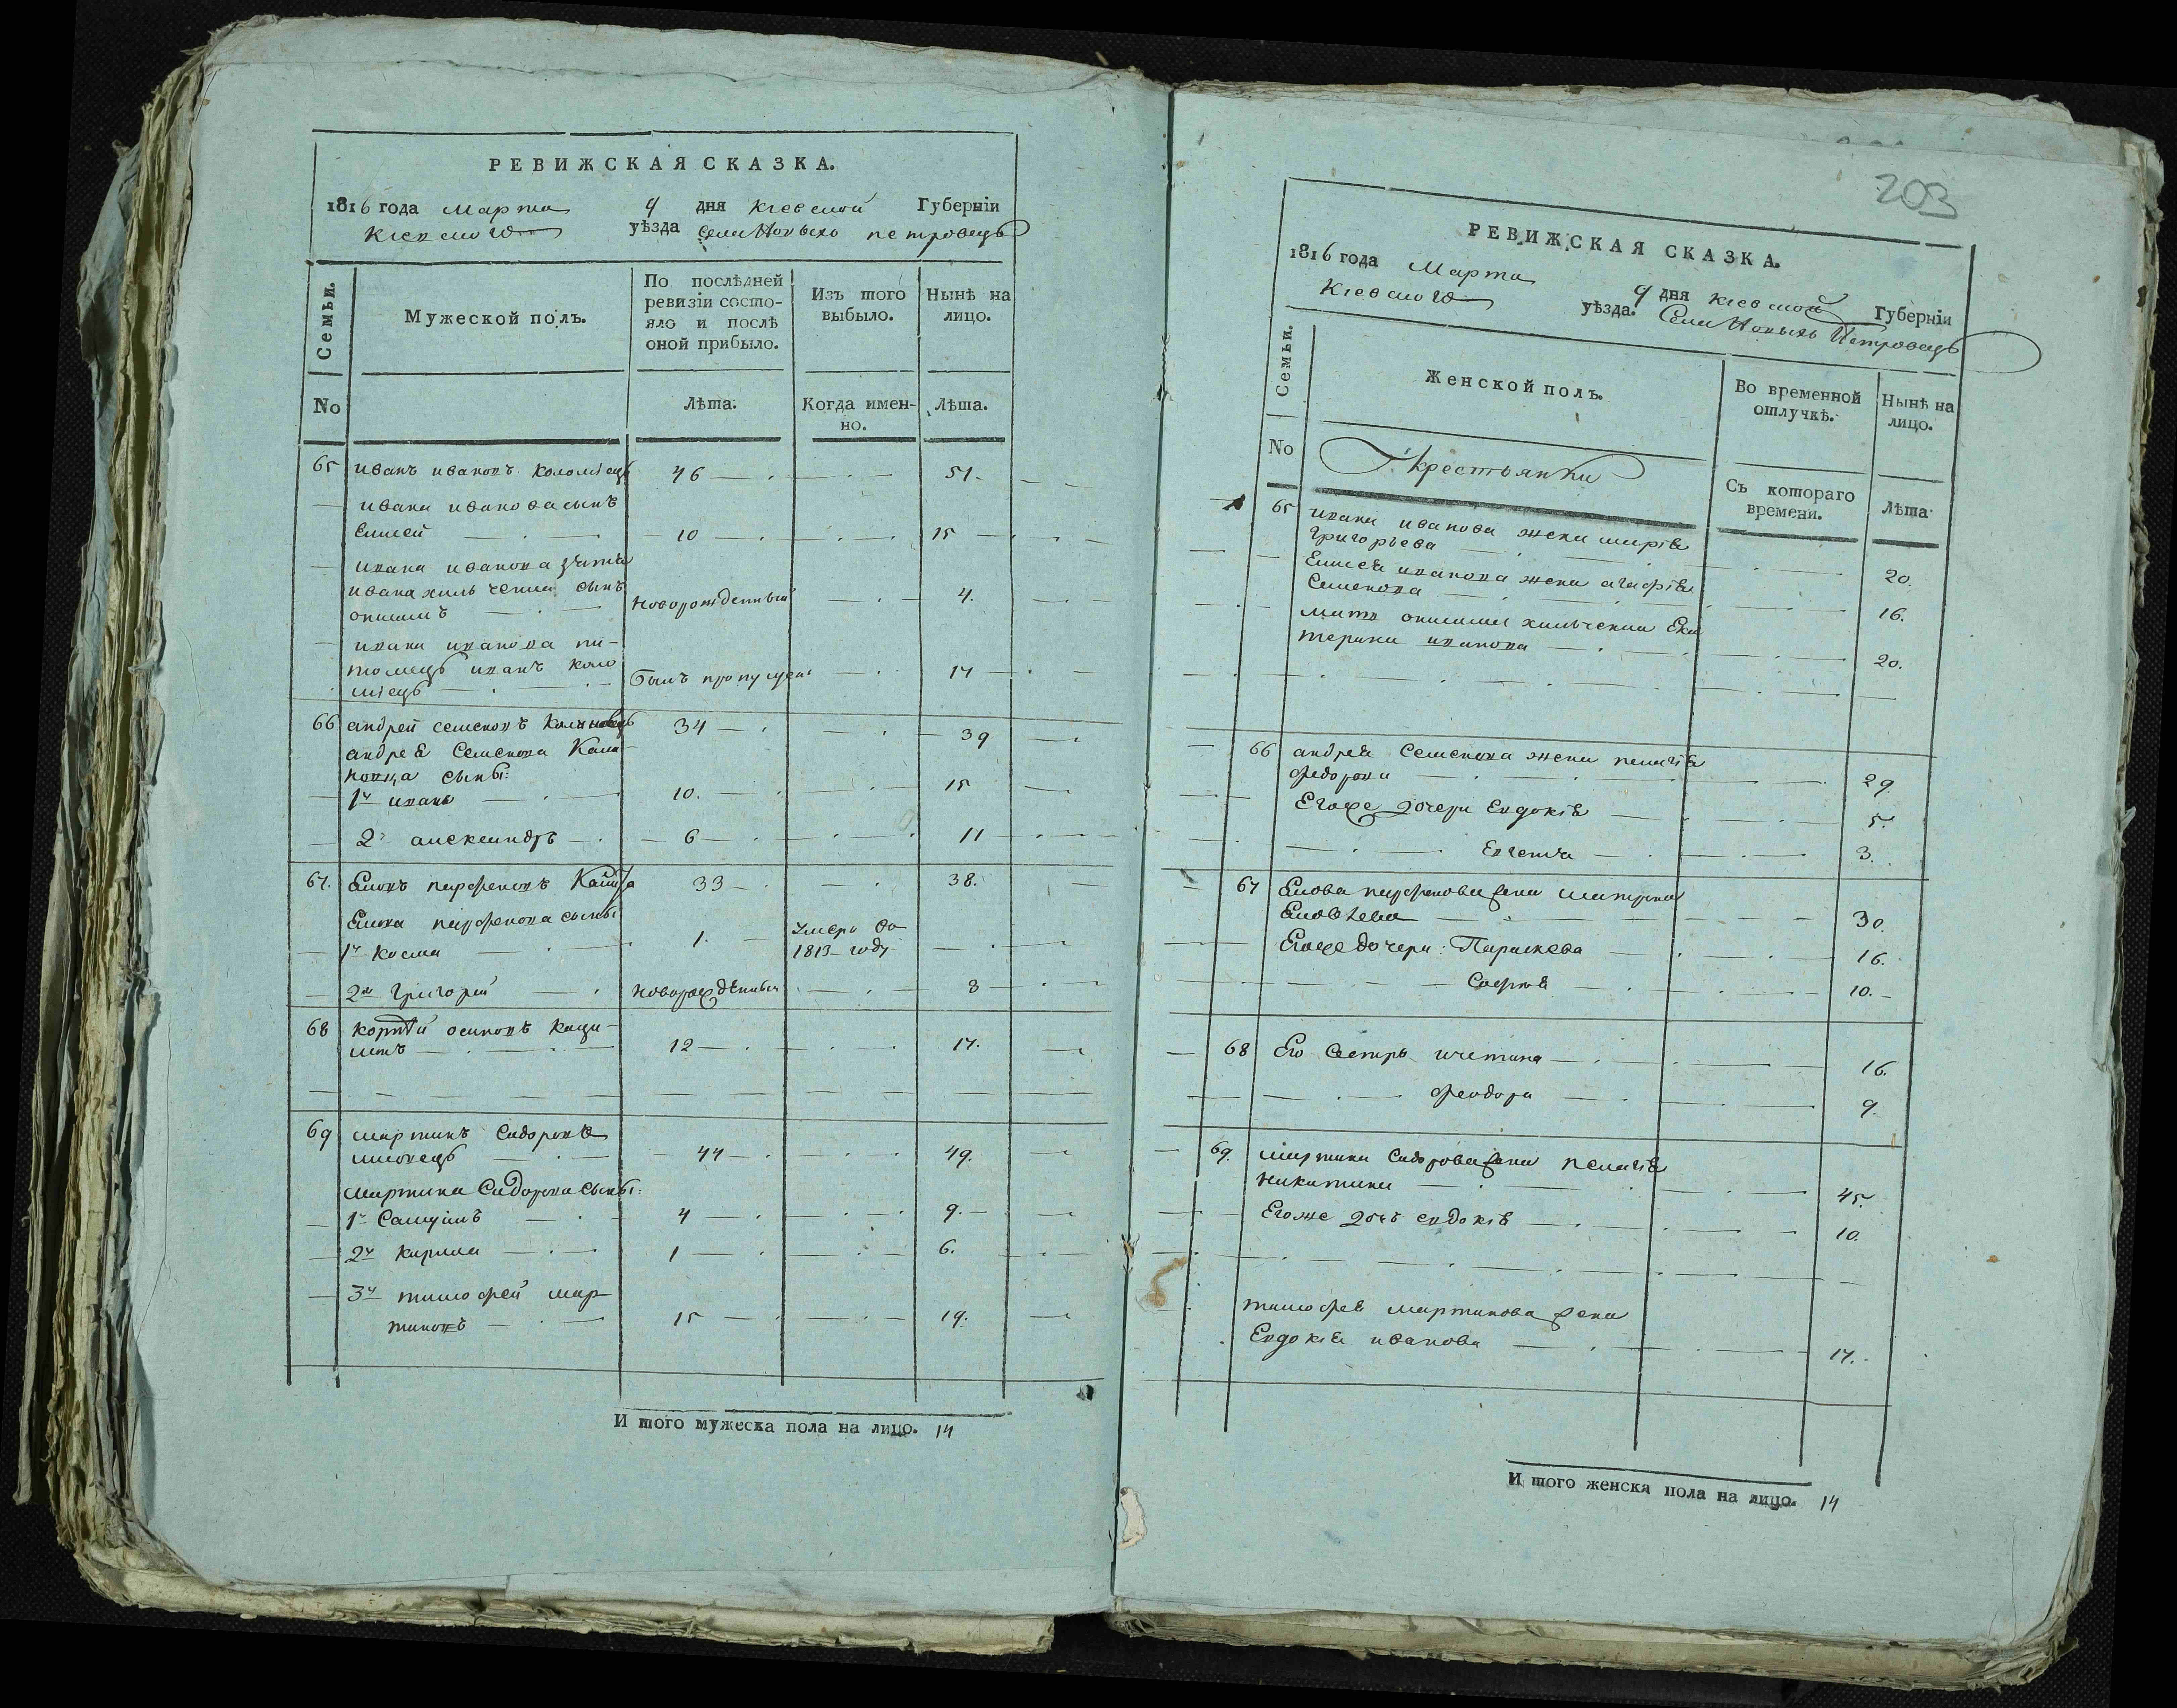 РЕВИЖСКАЯ СКАЗКА.
1816 года Марта 9 дня Киевской Губернїи
Киевского уѣзда Села Новыхъ петровецъ
Семьи.
Мужеской полъ.
По послѣдней
ревизїи состо-
яло и послѣ
оной прибыло.
Изъ того
выбыло.
Нынѣ на
лицо.
No
Лѣта.
Когда имен-
но.
Лѣта.
65 иванъ ивановъ коломіецъ 46 51.
ивана иванова сынъ
Елисей 10 15
ивана иванова зятя
ивана хильченка сынъ
онисимъ новорожденный 4.
ивана иванова пи-
томецъ иванъ коло
міецъ былъ пропущенъ 14
66 андрей семеновъ 34 39
андрея Семенова
сыны:
1й иванъ 10. 15
2й александръ 6 11
67. парфеновъ 33 38.
парфенова сыны
1й косма 1. Умеръ во
1813 году
2й Григорій новорожденный 3
68 осиповъ 12 17.
69 мартинъ Сидоровъ
44 49.
мартина Сидорова сыны:
1й Самуилъ 4 9.
2й кирила 1 6.
3й тимофей мар
тиновъ 15 19.
И того мужеска пола на лицо. 14
203
РЕВИЖСКАЯ СКАЗКА.
1816 года Марта 9 дня Киевской Губернїи
Киевского уѣзда. Села Новыхъ Петровецъ
Семьи.
Женской полъ.
Во временной
отлучкѣ.
Нынѣ на
лицо.
No
Крестьянки
Съ котораго
времени.
Лѣта
65 ивана иванова жена марія
Григорьева 20.
Елисея иванова жена агафія
Семенова 16.
мать онисима хильченка Ека
терина иванова 20.
66 андрея Семенова жена пелагія
федорова 29.
Егоже дочери Евдокія 5.
Евгенія 3.
67 парфенова жена матрона
30.
Егоже дочери: Параскева 16.
Софія 10.
68 Его Сестры 16.
феодора 9.
69. мартина Сидорова жена пелагія
никитина 45.
Егоже дочь евдокія 10.
тимофея мартинова жена
Евдокія иванова 17.
И того женска пола на лицо. 14